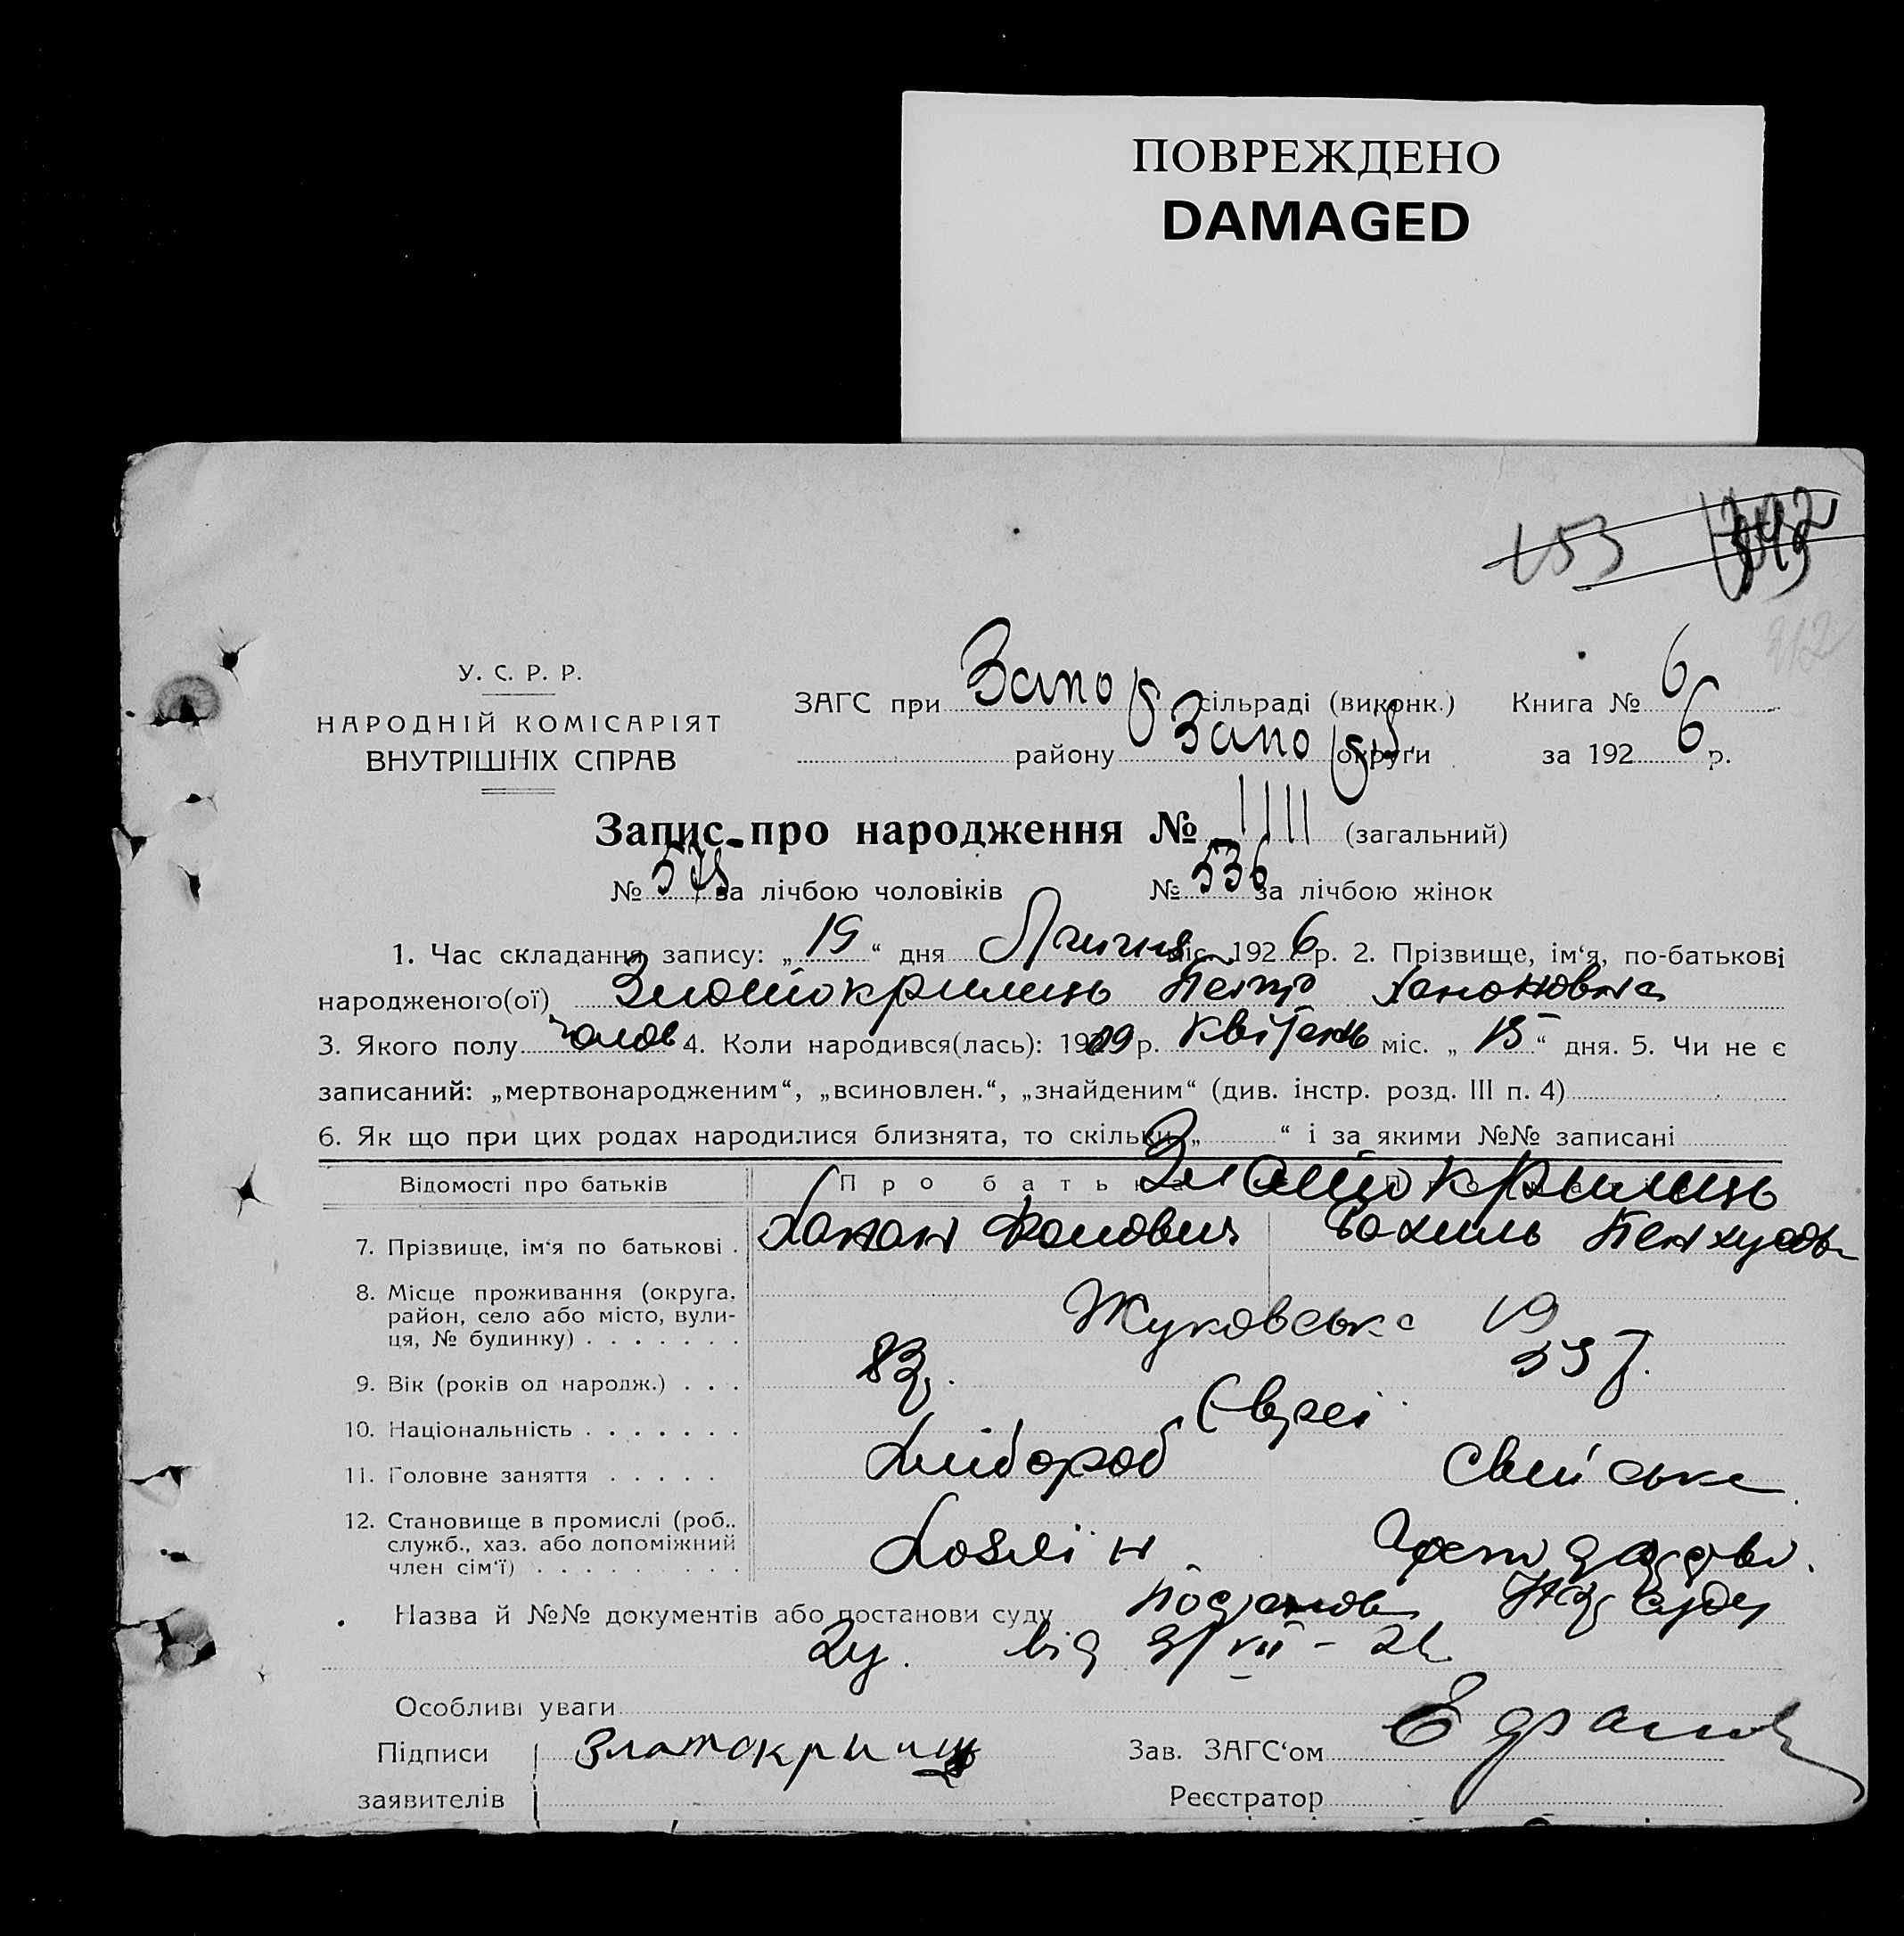 ПОВРЕЖДЕНО
DAMAGED
153
У. С. Р. Р.
НАРОДНІЙ КОМІСАРІЯТ
ВНУТРІШНІХ СПРАВ
ЗАГС при Запор сільраді (виконк.) Книга № 6
району Запор округи за 1926 р.
Запис про народження № 1111 (загальний)
№ 575 за лічбою чоловіків № 536 за лічбою жінок
1. Час складання запису: „19“ дня Липня міс. 1926 р. 2. Прізвище, ім‘я, по-батькові
народженого(ої) Златокрилець Петр Ханонович
3. Якого полу чолов 4. Коли народився(лась): 1909 р. квітень міс. „15“ дня. 5. Чи не є
записаний: „мертвонародженим“, „всиновлен.“, „знайденим“ (див. інстр. розд. III п. 4)
6. Як що при цих родах народилися близнята, то скільки „ “ і за якими №№ записані
Відомості про батьків Про батька
Златокрилець
7. Прізвище, ім‘я по батькові . Ханон Рахиль
8. Місце проживання (округа, район, село або місто, вулиця, № будинку) . . . . . . . Жуковська 19
9. Вік (років од народж.) . . .
10. Національність . . . . . . . Євреї
11. Головне заняття . . . . . Хлібороб Свійське
12. Становище в промислі (роб., служб., хаз. або допоміжний член сім‘ї) . . . . . . . . . Хазяїн
Назва й №№ документів або постанови суду Постанов Нар суду
2у. від
Особливі уваги
Підписи Златокрилец Зав. ЗАГС‘ом
заявителів Реєстратор